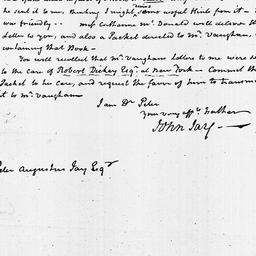 he sent it to me, thinking I might some useful Hints from it — it
was friendly — miss Catharine Mc Donald will deliver this
Letter to you, and also a Packet directed to Mr. Vaughan,
containing that Book —
You will recollect that Mr Vaughan's Letters to me were
to the care of Robert Dickey Esqr. at New York — Commit the
Packet to his care, and request the favor of him to transmit
it to Mr Vaughan
I am Dr Peter
Your very affte. Father
John Jay —
Peter Augustus Jay Esqr